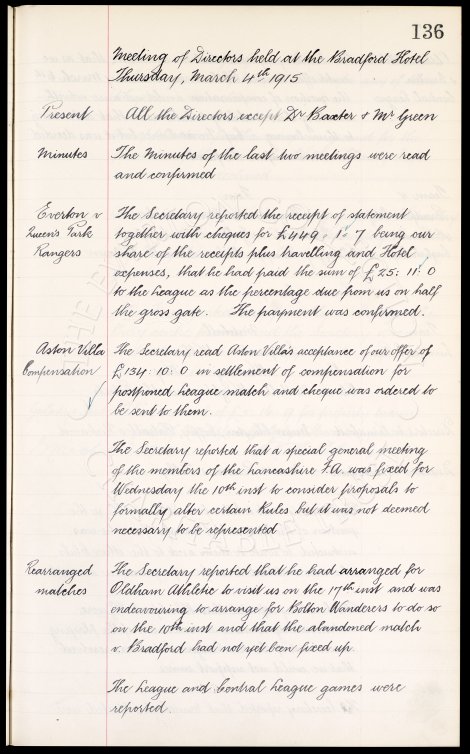 136
Meeting of Directors held at the Bradford Hotel
Thursday, March 4th 1915
Present All the Directors except Dr Baxter & Mr Green
Minutes The Minutes of the last two meetings were read
and confirmed
Everton v The Secretary reported the receipt of statement
Queen's Park together with cheques for £449: 1: 7 being our
Rangers share of the receipts plus travelling and Hotel
expenses, that he had paid the sum of £25: 11: 0
to the League as the percentage due from us on half
the gross gate. The payment was confirmed.
Aston Villa The Secretary read Aston Villa's acceptance of our offer of
Compensation £134: 10: 0 in settlement of compensation for
postponed League match and cheque was ordered to
be sent to them.
The Secretary reported that a special general meeting
of the members of the Lancashire F.A. was fixed for
Wednesday the 10th inst to consider proposals to
formally alter certain Rules but it was not deemed
necessary to be represented
Rearranged The Secretary reported that he had arranged for
matches Oldham Athletic to visit us on the 17th inst and was
endeavouring to arrange for Bolton Wanderers to do so
on the 10th inst and that the abandoned match
v. Bradford had not yet been fixed up.
The League and Central League games were
reported.